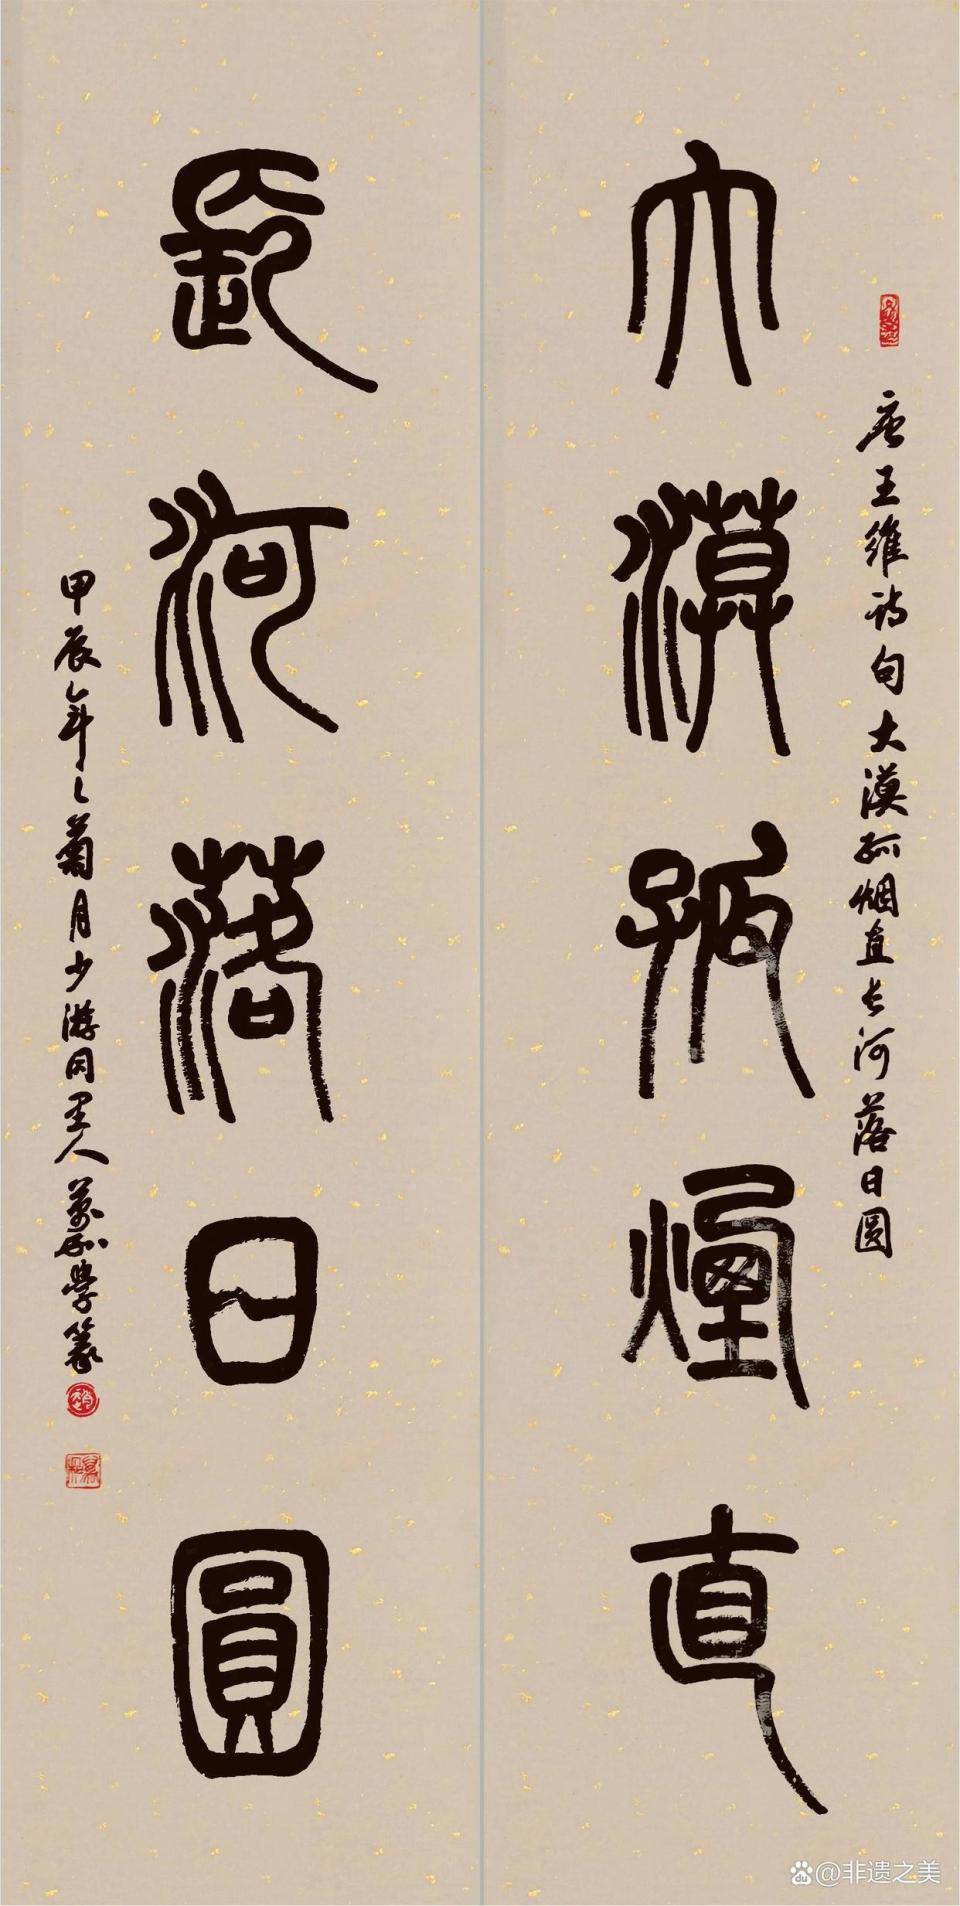 唐王维诗句大漠孤烟直长河落日圆
大漠孤煙直
長河落日圓
甲辰年之菊月少游同里人万和学篆
@非遗之美